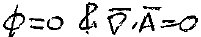 ϕ=0 & ∇̅·A̅=0